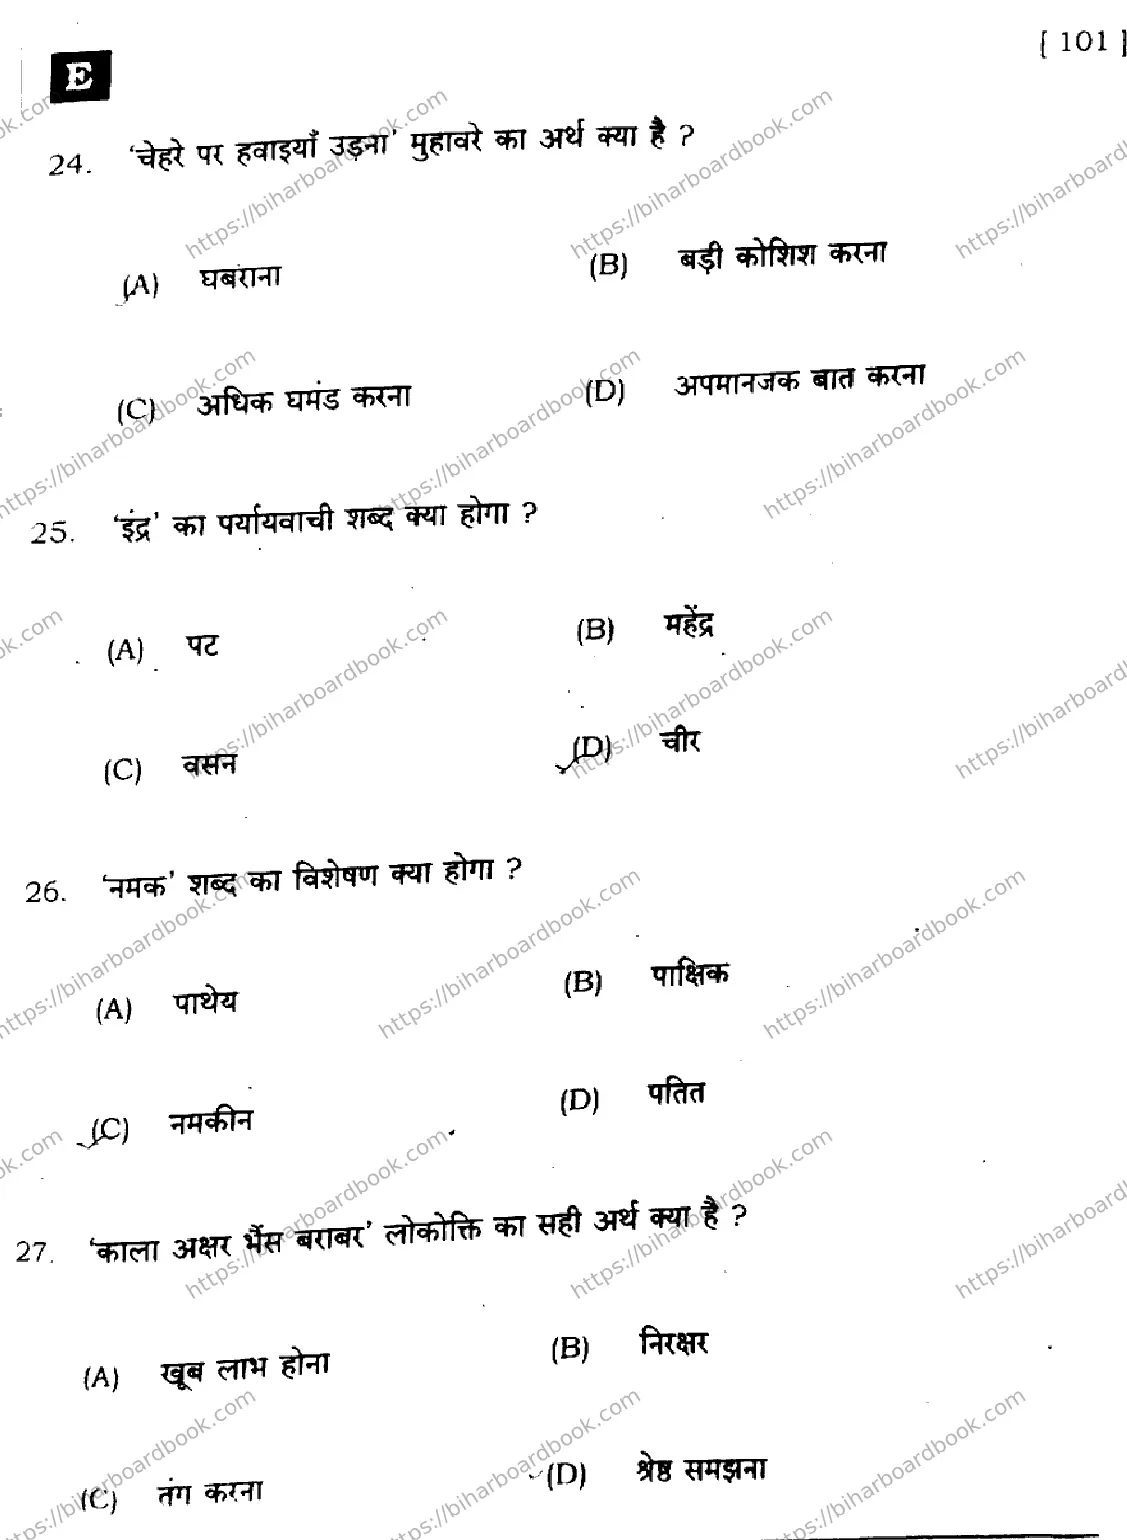 [ 101 ]
E
24. 'चेहरे पर हवाइयाँ उड़ना' मुहावरे का अर्थ क्या है ?
(A) घबराना (B) बड़ी कोशिश करना
(C) अधिक घमंड करना (D) अपमानजक बात करना
25. 'इंद्र' का पर्यायवाची शब्द क्या होगा ?
(A) पट (B) महेंद्र
(C) वसन (D) चीर
26. 'नमक' शब्द का विशेषण क्या होगा ?
(A) पाथेय (B) पाक्षिक
(C) नमकीन (D) पतित
27. 'काला अक्षर भैंस बराबर' लोकोक्ति का सही अर्थ क्या है ?
(A) खूब लाभ होना (B) निरक्षर
(C) तंग करना (D) श्रेष्ठ समझना
https://biharboardbook.com